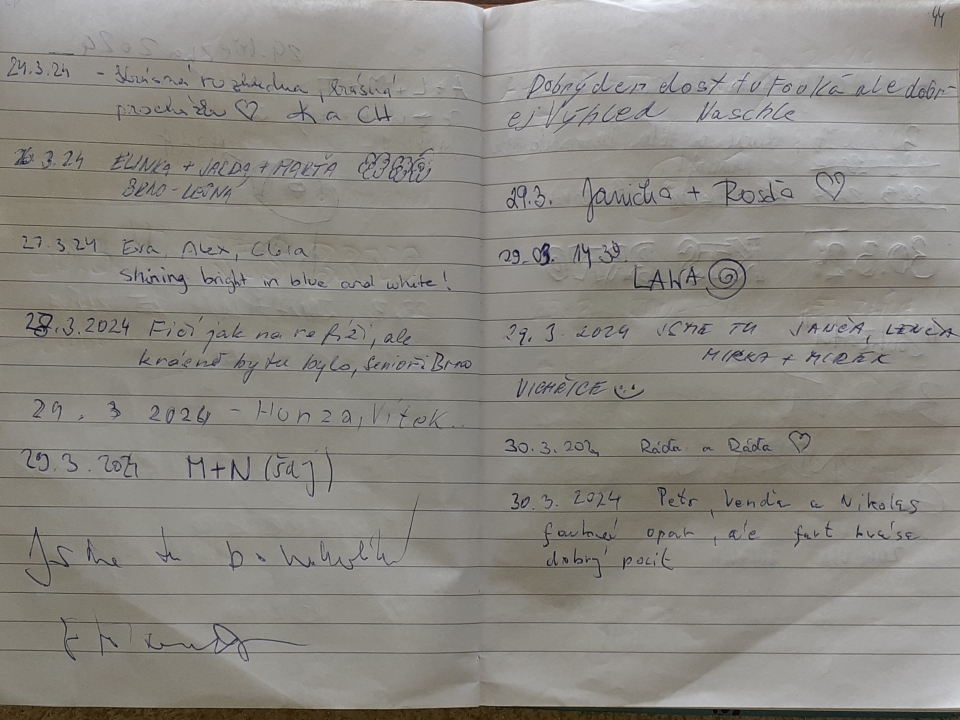 24.3.24 - krásná rozhledna, krásná
procházka ♡ K a CH
26.3.24 ELINKA + JARDA + MARŤA
BRNO-LESNÁ
27.3.24 Eva, Alex, Clara
Shining bright in blue and white!
28.3.2024 Fičí jak na refíži, ale
krásně by tu bylo, senioři Brno
29.3 2024 - Honza, Vítek..
29.3.2024 M+N (šaj)
Jsme tu
44
Dobrý den dost tu Fouká ale dobr-
ej Výhled Naschle
29.3. Janička + Rosťa ♡
29.03. 14 30.
LAWA
29.3. 2024 JSME TU JANČA, LENČA
MIRKA + MIREK
VICHŘICE
30.3.202 Ráďa a Ráďa ♡
30.3.2024 Petr, Venďa a Nikolas
opar, ale furt
dobrý pocit